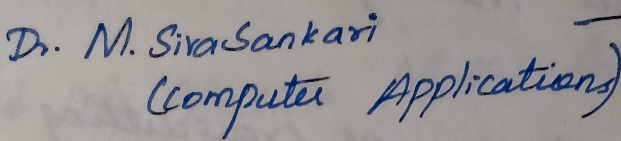 Dr. M. SivaSankari
(Computer Applications)